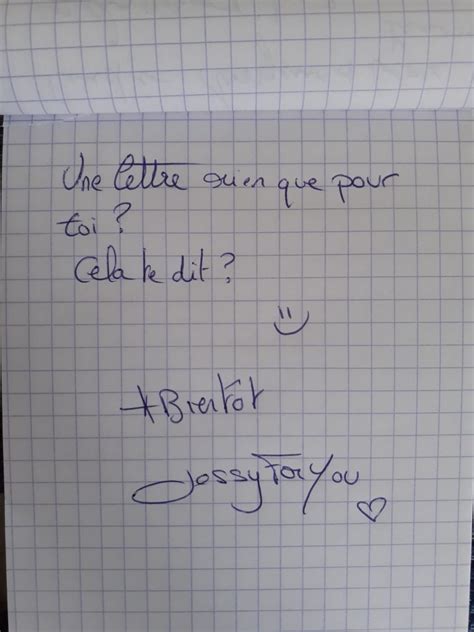 Une lettre rien que pour
toi ?
Cela te dit ?
*Bientôt
JessyForYou